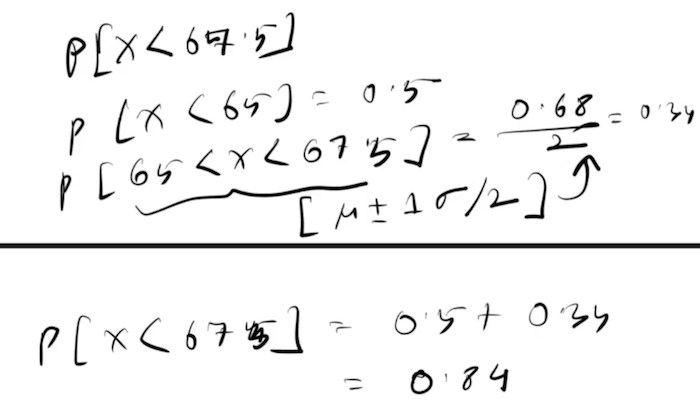 P[x < 67.5]
P[x < 65] = 0.5
P[65 < x < 67.5] = 0.68/2 = 0.34
[μ ± 1σ/2]
P[x < 67.5] = 0.5 + 0.34
= 0.84